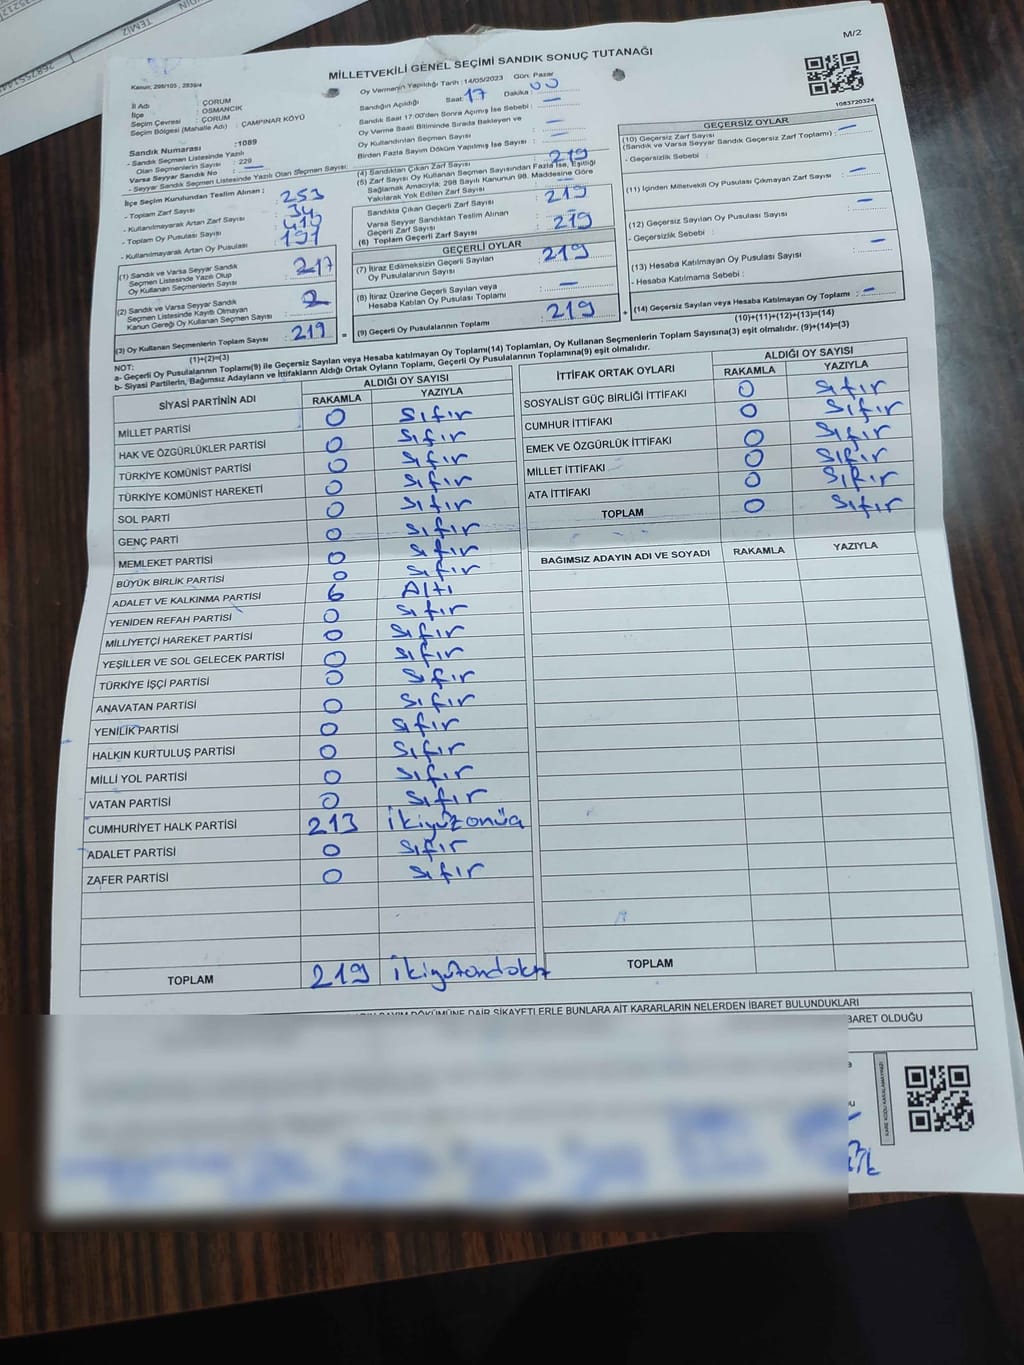 TEMİZ
M/2
MİLLETVEKİLİ GENEL SEÇİMİ SANDIK SONUÇ TUTANAĞI
Kanun; 298/105 , 2839/4
1083720324
İl Adı : ÇORUM
İlçe : OSMANCIK
Seçim Çevresi : ÇORUM
Seçim Bölgesi (Mahalle Adı) : ÇAMPINAR KÖYÜ
Sandık Numarası :1089
- Sandık Seçmen Listesinde Yazılı
Olan Seçmenlerin Sayısı : 229
Varsa Seyyar Sandık No : —
- Seyyar Sandık Seçmen Listesinde Yazılı Olan Seçmen Sayısı:
İlçe Seçim Kurulundan Teslim Alınan ;
- Toplam Zarf Sayısı : 253
- Kullanılmayarak Artan Zarf Sayısı : 34
- Toplam Oy Pusulası Sayısı : 410
- Kullanılmayarak Artan Oy Pusulası : 191
(1) Sandık ve Varsa Seyyar Sandık
Seçmen Listesinde Yazılı Olup
Oy Kullanan Seçmenlerin Sayısı : 217
(2) Sandık ve Varsa Seyyar Sandık
Seçmen Listesinde Kayıtlı Olmayan
Kanun Gereği Oy Kullanan Seçmen Sayısı : 2
(3) Oy Kullanan Seçmenlerin Toplam Sayısı : 219
(1)+(2)=(3)
Oy Vermenin Yapıldığı Tarih : 14/05/2023 Gün: Pazar
Sandığın Açıldığı Saat: 17 Dakika : 00
Sandık Saat 17.00'den Sonra Açımış İse Sebebi : —
Oy Verme Saati Bitiminde Sırada Bekleyen ve
Oy Kullandırılan Seçmen Sayısı : —
Birden Fazla Sayım Döküm Yapılmış İse Sayısı : —
(4) Sandıktan Çıkan Zarf Sayısı : 219
(5) Zarf Sayısı Oy Kullanan Seçmen Sayısından Fazla İse, Eşitliği
Sağlamak Amacıyla; 298 Sayılı Kanunun 98. Maddesine Göre
Yakılarak Yok Edilen Zarf Sayısı : —
Sandıkta Çıkan Geçerli Zarf Sayısı : 219
Varsa Seyyar Sandıktan Teslim Alınan
Geçerli Zarf Sayısı : —
(6) Toplam Geçerli Zarf Sayısı : 219
GEÇERLİ OYLAR
(7) İtiraz Edilmeksizin Geçerli Sayılan
Oy Pusulalarının Sayısı : 219
(8) İtiraz Üzerine Geçerli Sayılan veya
Hesaba Katılan Oy Pusulası Toplamı : —
= (9) Geçerli Oy Pusulalarının Toplamı : 219
GEÇERSİZ OYLAR
(10) Geçersiz Zarf Sayısı
(Sandık ve Varsa Seyyar Sandık Geçersiz Zarf Toplamı) : —
- Geçersizlik Sebebi :
(11) İçinden Milletvekili Oy Pusulası Çıkmayan Zarf Sayısı : —
(12) Geçersiz Sayılan Oy Pusulası Sayısı : —
- Geçersizlik Sebebi :
(13) Hesaba Katılmayan Oy Pusulası Sayısı : —
- Hesaba Katılmama Sebebi :
+ (14) Geçersiz Sayılan veya Hesaba Katılmayan Oy Toplamı : —
(10)+(11)+(12)+(13)=(14)
NOT:
a- Geçerli Oy Pusulalarının Toplamı(9) ile Geçersiz Sayılan veya Hesaba katılmayan Oy Toplamı(14) Toplamları, Oy Kullanan Seçmenlerin Toplam Sayısına(3) eşit olmalıdır. (9)+(14)=(3)
b- Siyasi Partilerin, Bağımsız Adayların ve İttifakların Aldığı Ortak Oyların Toplamı, Geçerli Oy Pusulalarının Toplamına(9) eşit olmalıdır.
SİYASİ PARTİNİN ADI ALDIĞI OY SAYISI
RAKAMLA YAZIYLA
MİLLET PARTİSİ 0 Sıfır
HAK VE ÖZGÜRLÜKLER PARTİSİ 0 Sıfır
TÜRKİYE KOMÜNİST PARTİSİ 0 Sıfır
TÜRKİYE KOMÜNİST HAREKETİ 0 Sıfır
SOL PARTİ 0 Sıfır
GENÇ PARTİ 0 Sıfır
MEMLEKET PARTİSİ 0 Sıfır
BÜYÜK BİRLİK PARTİSİ 0 Sıfır
ADALET VE KALKINMA PARTİSİ 6 Altı
YENİDEN REFAH PARTİSİ 0 Sıfır
MİLLİYETÇİ HAREKET PARTİSİ 0 Sıfır
YEŞİLLER VE SOL GELECEK PARTİSİ 0 Sıfır
TÜRKİYE İŞÇİ PARTİSİ 0 Sıfır
ANAVATAN PARTİSİ 0 Sıfır
YENİLİK PARTİSİ 0 Sıfır
HALKIN KURTULUŞ PARTİSİ 0 Sıfır
MİLLİ YOL PARTİSİ 0 Sıfır
VATAN PARTİSİ 0 Sıfır
CUMHURİYET HALK PARTİSİ 213 İkiyüzonüç
ADALET PARTİSİ 0 Sıfır
ZAFER PARTİSİ 0 Sıfır
TOPLAM 219 İkiyüzondokuz
İTTİFAK ORTAK OYLARI ALDIĞI OY SAYISI
RAKAMLA YAZIYLA
SOSYALİST GÜÇ BİRLİĞİ İTTİFAKI 0 Sıfır
CUMHUR İTTİFAKI 0 Sıfır
EMEK VE ÖZGÜRLÜK İTTİFAKI 0 Sıfır
MİLLET İTTİFAKI 0 Sıfır
ATA İTTİFAKI 0 Sıfır
TOPLAM 0 Sıfır
BAĞIMSIZ ADAYIN ADI VE SOYADI RAKAMLA YAZIYLA
TOPLAM
DÖKÜMÜNE DAİR ŞİKAYETLERLE BUNLARA AİT KARARLARIN NELERDEN İBARET BULUNDUKLARI
BARET OLDUĞU